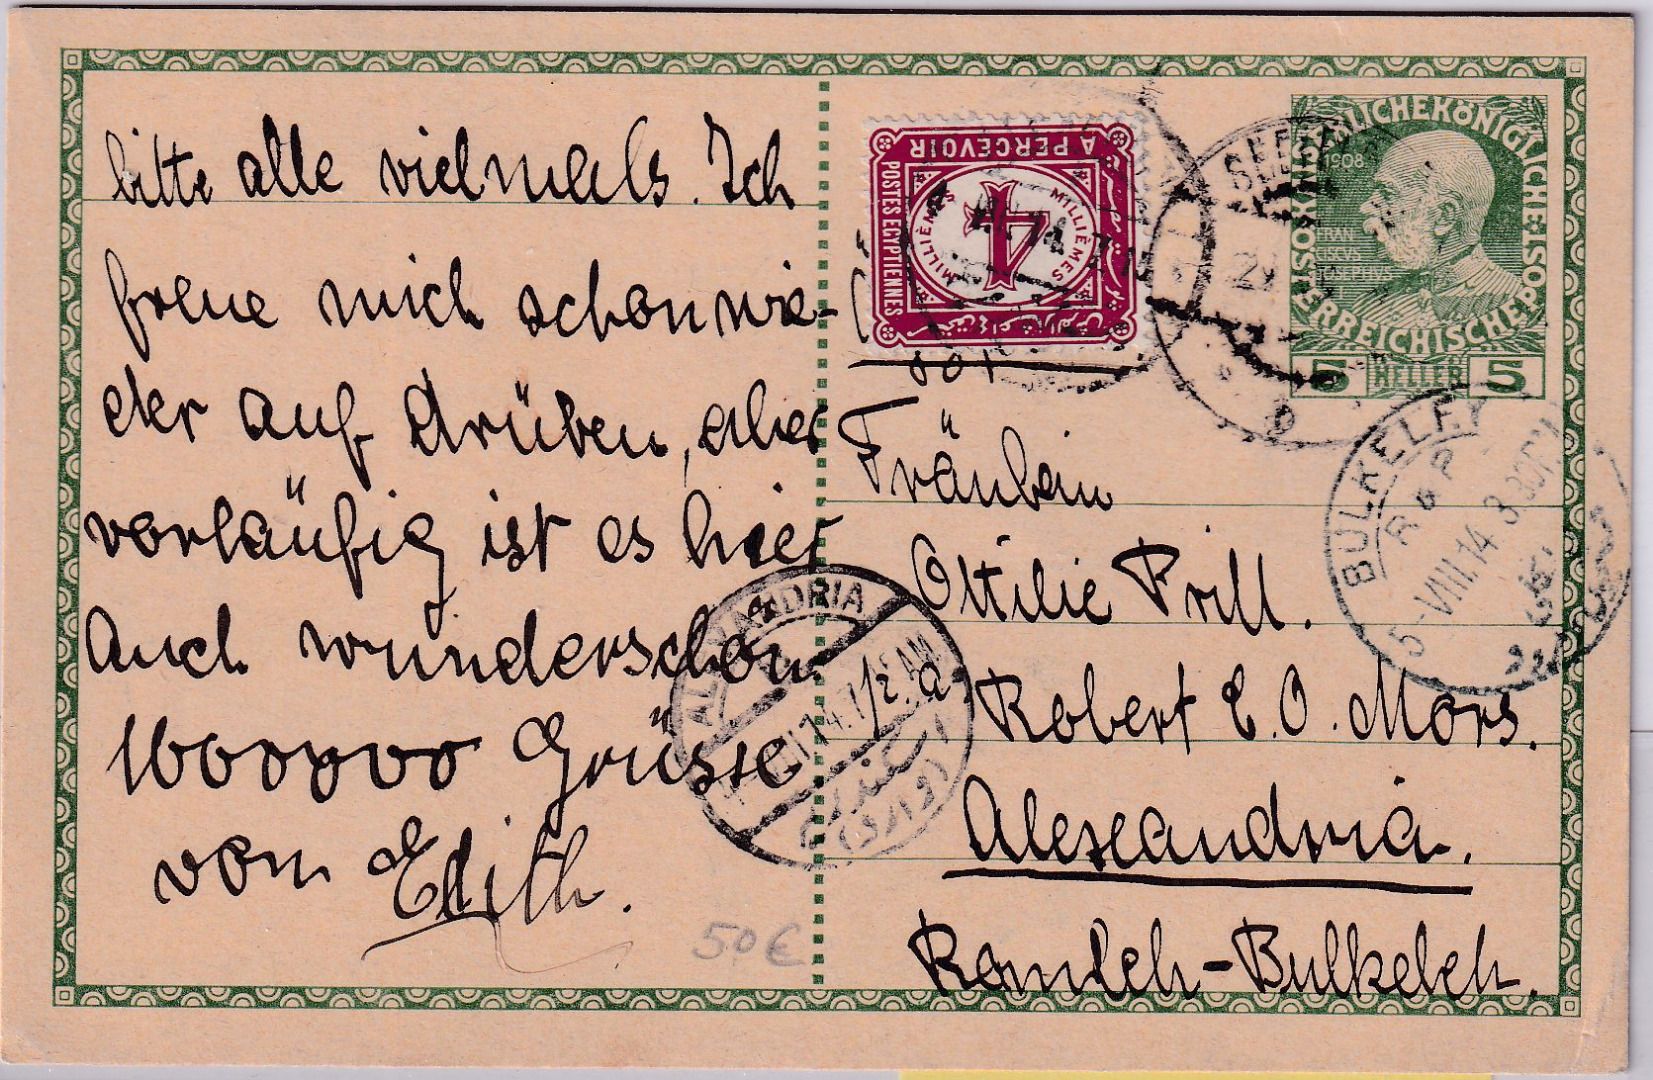 bitte alle vielmals. Ich
freue mich schon wie-
der auf drüben, aber
vorläufig ist es hier
auch wunderschön
1000000 Grüsse
von Edith.
50€
A PERCEVOIR
POSTES EGYPTIENNES
4
MILLIÈMES
MILLIÈMES
KAISERLICHEKÖNIGLICHE
ÖSTERREICHISCHEPOST
1908
FRAN
CISCVS
IOSEPHVS
5 HELLER 5
BULKELEY
5-VIII.14.3.30PM
ALEXANDRIA
Fräulein
Ottilie Prill.
a/ Robert E. O. Mors.
Alexandria.
Ramleh-Bulkeleh.